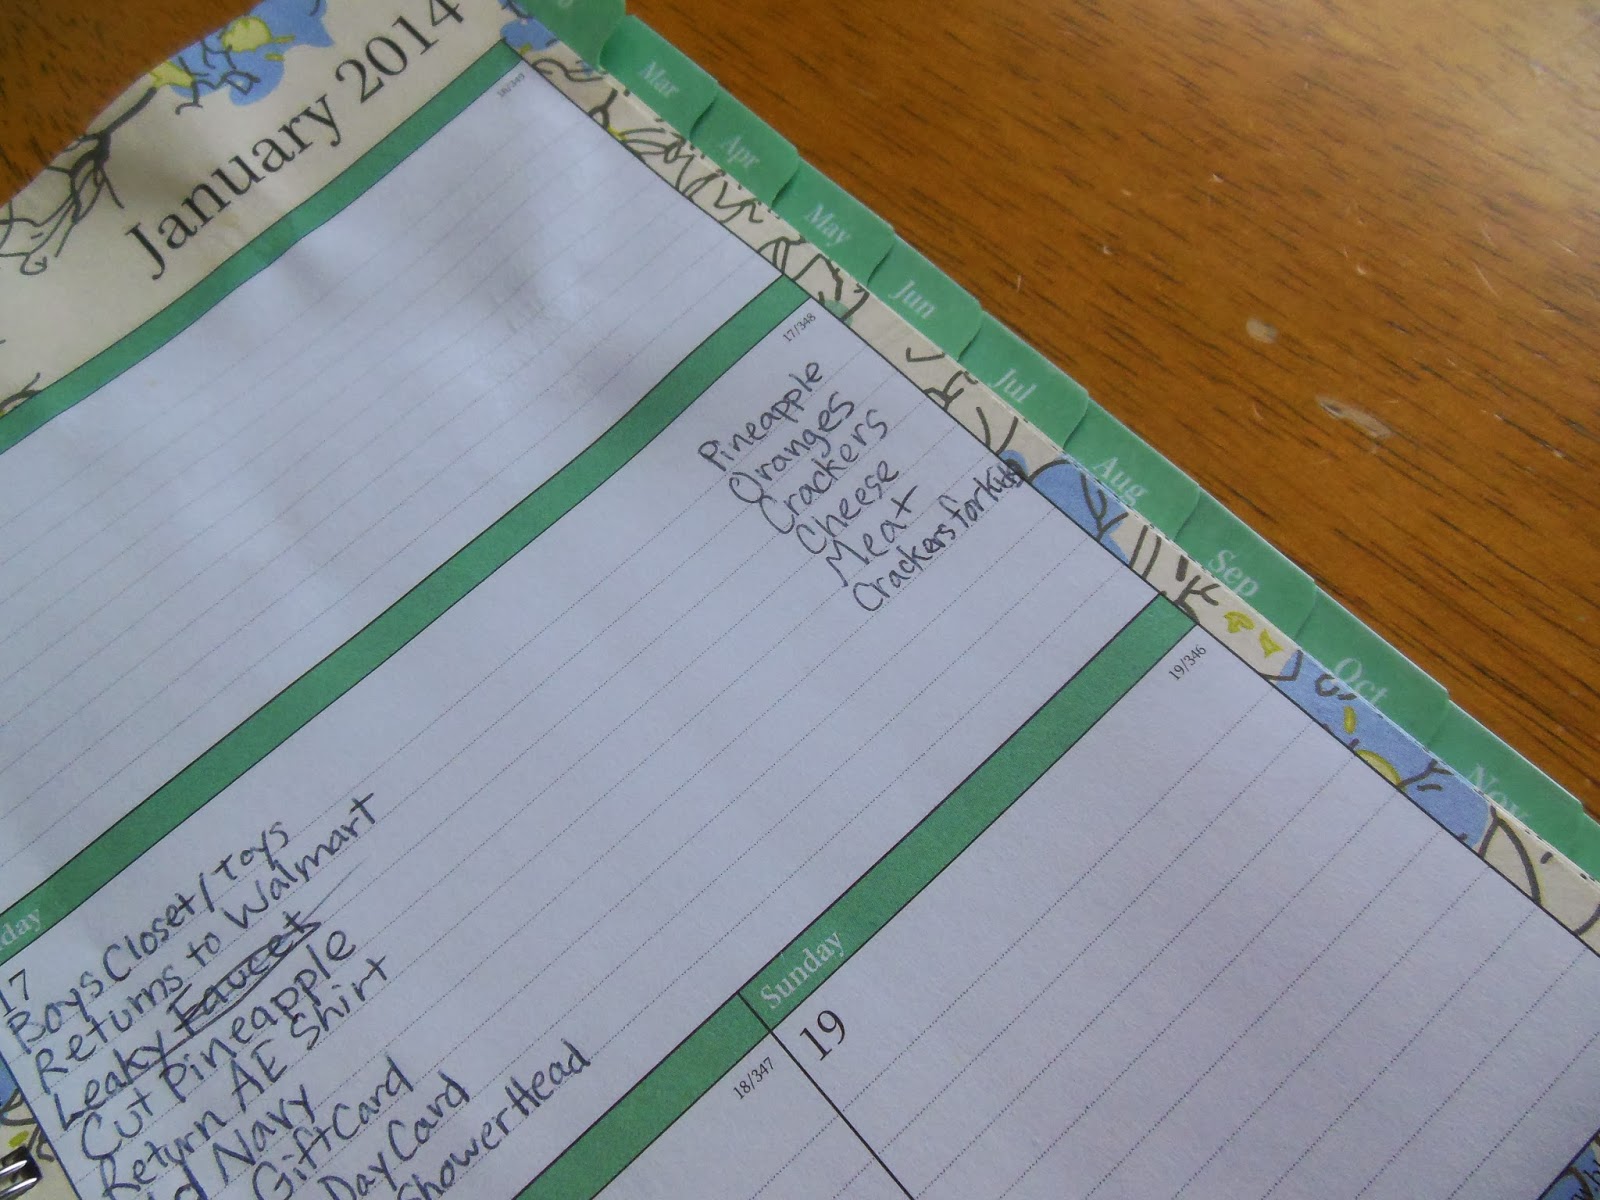 January 2014
16/349
17/348
Pineapple
Oranges
Crackers
Cheese
Meat
Crackers for Kids
day
17
Boys Closet/Toys
Returns to Walmart
Leaky Faucet
Cut Pineapple
Return AE Shirt
Navy
Gift Card
Day Card
Shower Head
18/347
Sunday
19
19/346
Mar
Apr
May
Jun
Jul
Aug
Sep
Oct
Nov